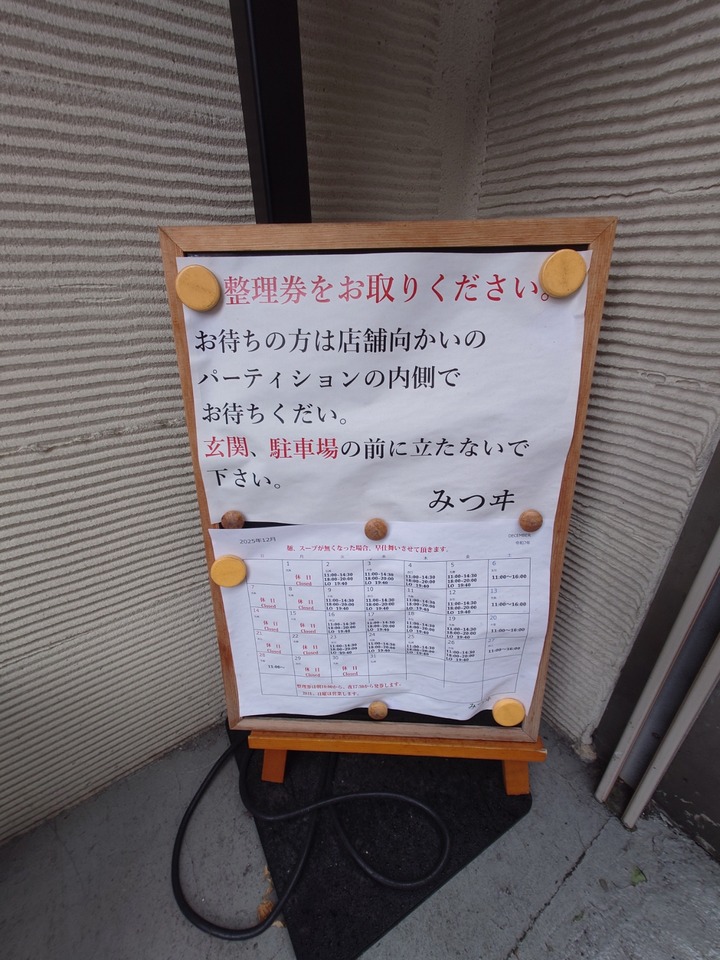 整理券をお取りください。
お待ちの方は店舗向かいの
パーティションの内側で
お待ちくだい。
玄関、駐車場の前に立たないで
下さい。
みつヰ
2025年12月
DECEMBER
令和7年
麺、スープが無くなった場合、早仕舞いさせて頂きます。
日 月 火 水 木 金 土
1 2 3 4 5 6
休 日 11:00-14:30 11:00-14:30 11:00-14:30 11:00-14:30 11:00~16:00
Closed 18:00-20:00 18:00-20:00 18:00-20:00 18:00-20:00
LO 19:40 LO 19:40 LO 19:40 LO 19:40
7 8 9 10 11 12 13
休 日 休 日 11:00-14:30 11:00-14:30 11:00-14:30 11:00-14:30 11:00~16:00
Closed Closed 18:00-20:00 18:00-20:00 18:00-20:00 18:00-20:00
LO 19:40 LO 19:40 LO 19:40 LO 19:40
14 15 16 17 18 19 20
休 日 休 日 11:00-14:30 11:00-14:30 11:00-14:30 11:00-14:30 11:00~16:00
Closed Closed 18:00-20:00 18:00-20:00 18:00-20:00 18:00-20:00
LO 19:40 LO 19:40 LO 19:40 LO 19:40
21 22 23 24 25 26
休 日 休 日 11:00-14:30 11:00-14:30 11:00-14:30 11:00-14:30 11:00~16:00
Closed Closed 18:00-20:00 18:00-20:00 18:00-20:00 18:00-20:00
28 29 30 31
11:00~ 休 日 休 日
Closed Closed